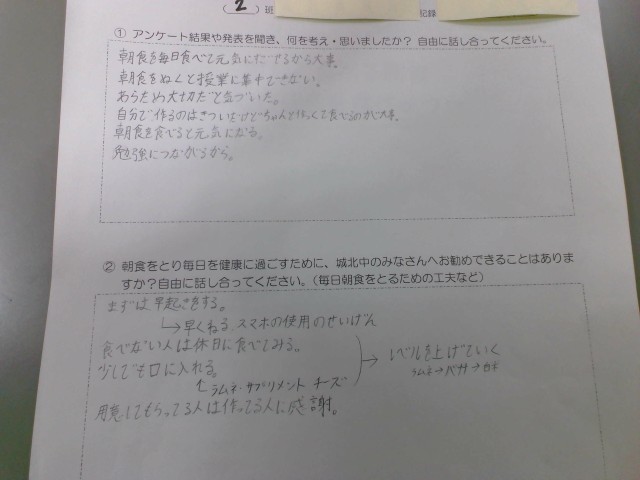 ( 2 ) 班
記録
① アンケート結果や発表を聞き、何を考え・思いましたか？ 自由に話し合ってください。
朝食を毎日食べて元気にすごせるから大事。
朝食をぬくと授業に集中できない。
あらためて大切だと気づいた。
自分で作るのはきついけどちゃんと作って食べるのが大事。
朝食を食べると元気になる。
勉強につながるから。
② 朝食をとり毎日を健康に過ごすために、城北中のみなさんへお勧めできることはありま
すか？自由に話し合ってください。（毎日朝食をとるための工夫など）
まずは早起きをする。
↳早くねる スマホの使用のせいげん
食べない人は休日に食べてみる。
少しでも口に入れる。
↑ラムネ・サプリメント チーズ
→ レベルを上げていく
ラムネ→バナナ→
用意してもらってる人は作ってる人に感謝。